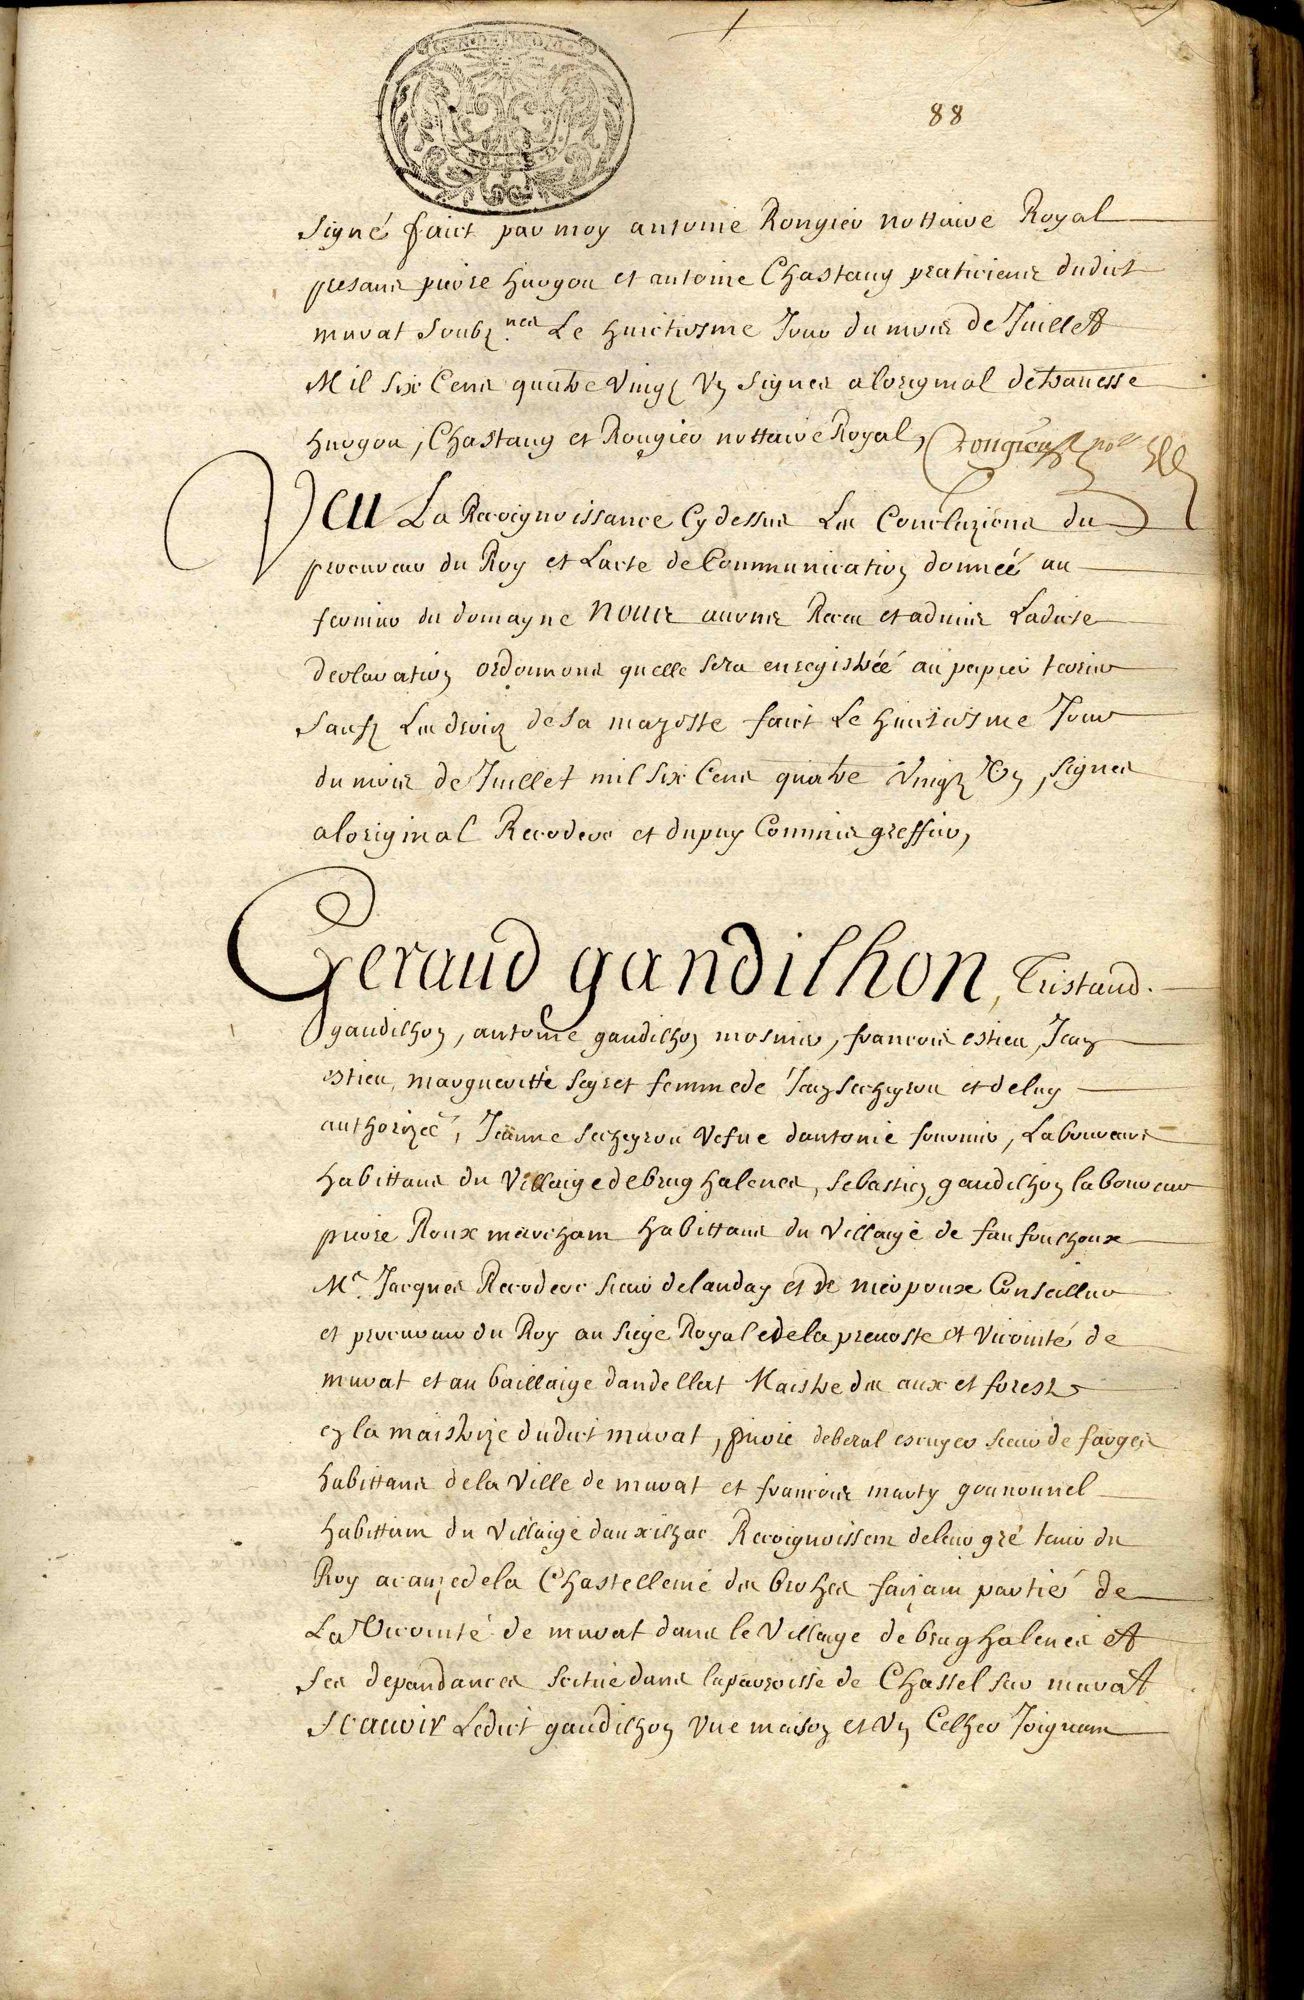 88
signé faict par moy antoine Rougier nottaire Royal
presans pierre huogon et antoine Chastang praticiens dudict
murat soubz.nes Le huictiesme Jour du mois de Juillet
Mil six Cens quatre vingz Un signes a loriginal detrauesse
huogon, Chastang et Rougier nottaire Royal, Rougier
Veu La Recoignoissance Cydessus Les Concluzions du
procureur du Roy et Lacte de Communication donnéé au
fermier du domayne nous auons Receu et admis Ladicte
declaration ordonnons quelle sera enregistréé au papier terrier
saufz Les droiz de sa mayeste faict Le huictiesme Jour
du mois de Juillet mil six Cens quatre vingz Un, signes
a loriginal Recoderc et dupuy Commis greffier,
Geraud gandilhon, Tristand.
gandilhon, antoine gandilhon mosnier, francois estieu, Jean
estieu, margueritte seyret femme de Jean secheyrou et de luy
authorizeé, Jeanne secheyrou vefue dantonie fournier, Laboureurs
habittans du Villaige de brughalenes, sebastien gandilhon laboureur
pierre Roux marchant habittans du villaige de faufoulhoux
Me. Jacques Recoderc sieur delauday et de niérpoux Conseiller
et procureur du Roy au siege Royal edela preuoste et Vicomté de
murat et au baillaige dandellat Maistre des aux et forestz
en la maistrize dudict murat, pierre deberal escuyer sieur de farges
habittans dela ville de murat et francois marty gounounel
habittant du villaige dauxilhac Recoignoissent deleur gré tenir du
Roy acauze dela Chastellenie des brohes faizant partié de
La Vicomté de murat dans le Village de brughalenes et
ses dependances scitué dans la parroisse de Chastel sur murat
Scauoir Ledict gandilhon vne maison et vn Celher Joignant